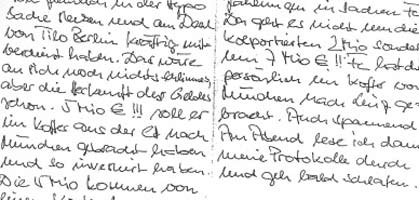 in der Hypo
Sache Herzen und am Deal
von Tilo Berlin kräftig mit
verdient haben. Das wäre
an sich noch nichts schlimmes
aber die Herkunft des Geldes
schon. 5 Mio € !!! soll er
im Koffer aus der CH nach
München gebracht haben
und so investiert haben.
Die 5 Mio kommen von
in Sachen
Da geht es nicht um die
kolportierten 2 Mio sondern
um 7 Mio € !!! Er hat die
persönlich im Koffer von
München nach Linz ge
bracht. Auch spannend
Am Abend lese ich dann
meine Protokolle durch
und geh bald schlafen.